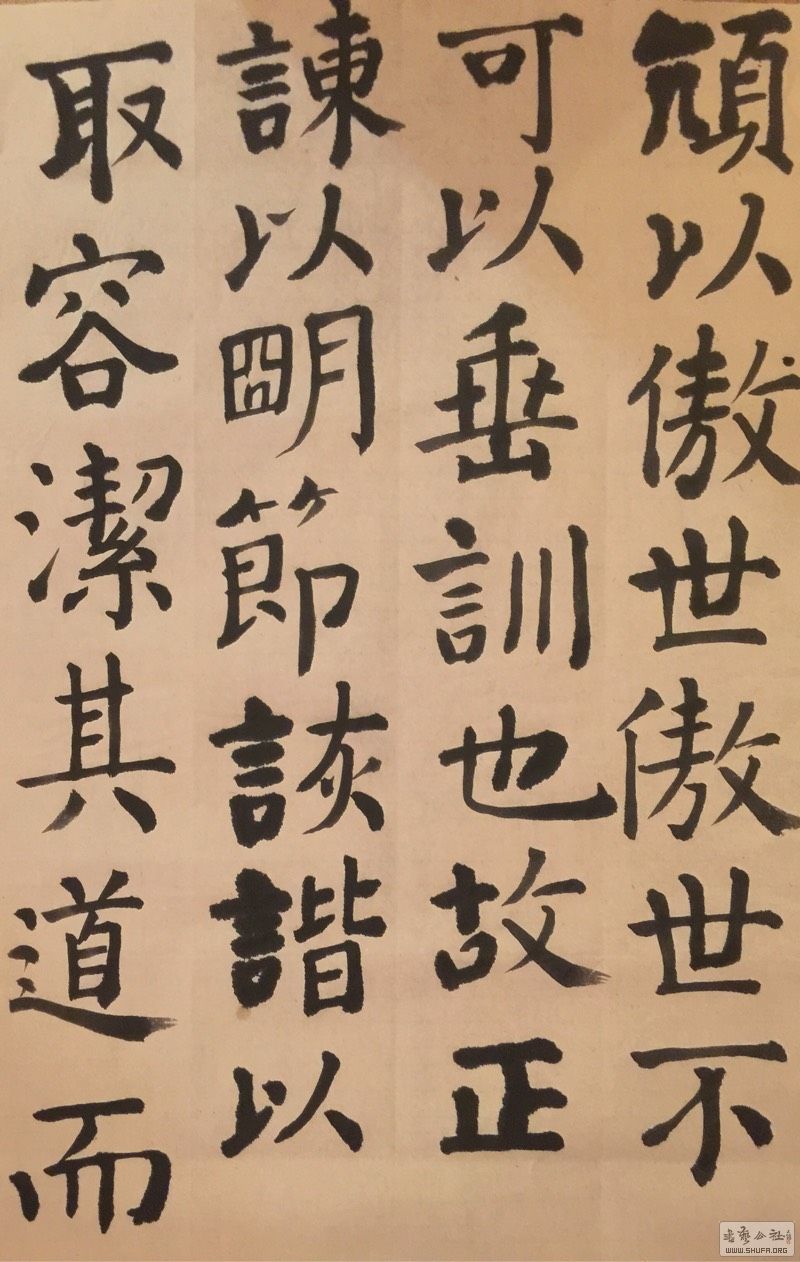 頏以傲世傲世不
可以垂訓也故正
諫以明節詼諧以
取容潔其道而
书艺公社
WWW.SHUFA.ORG